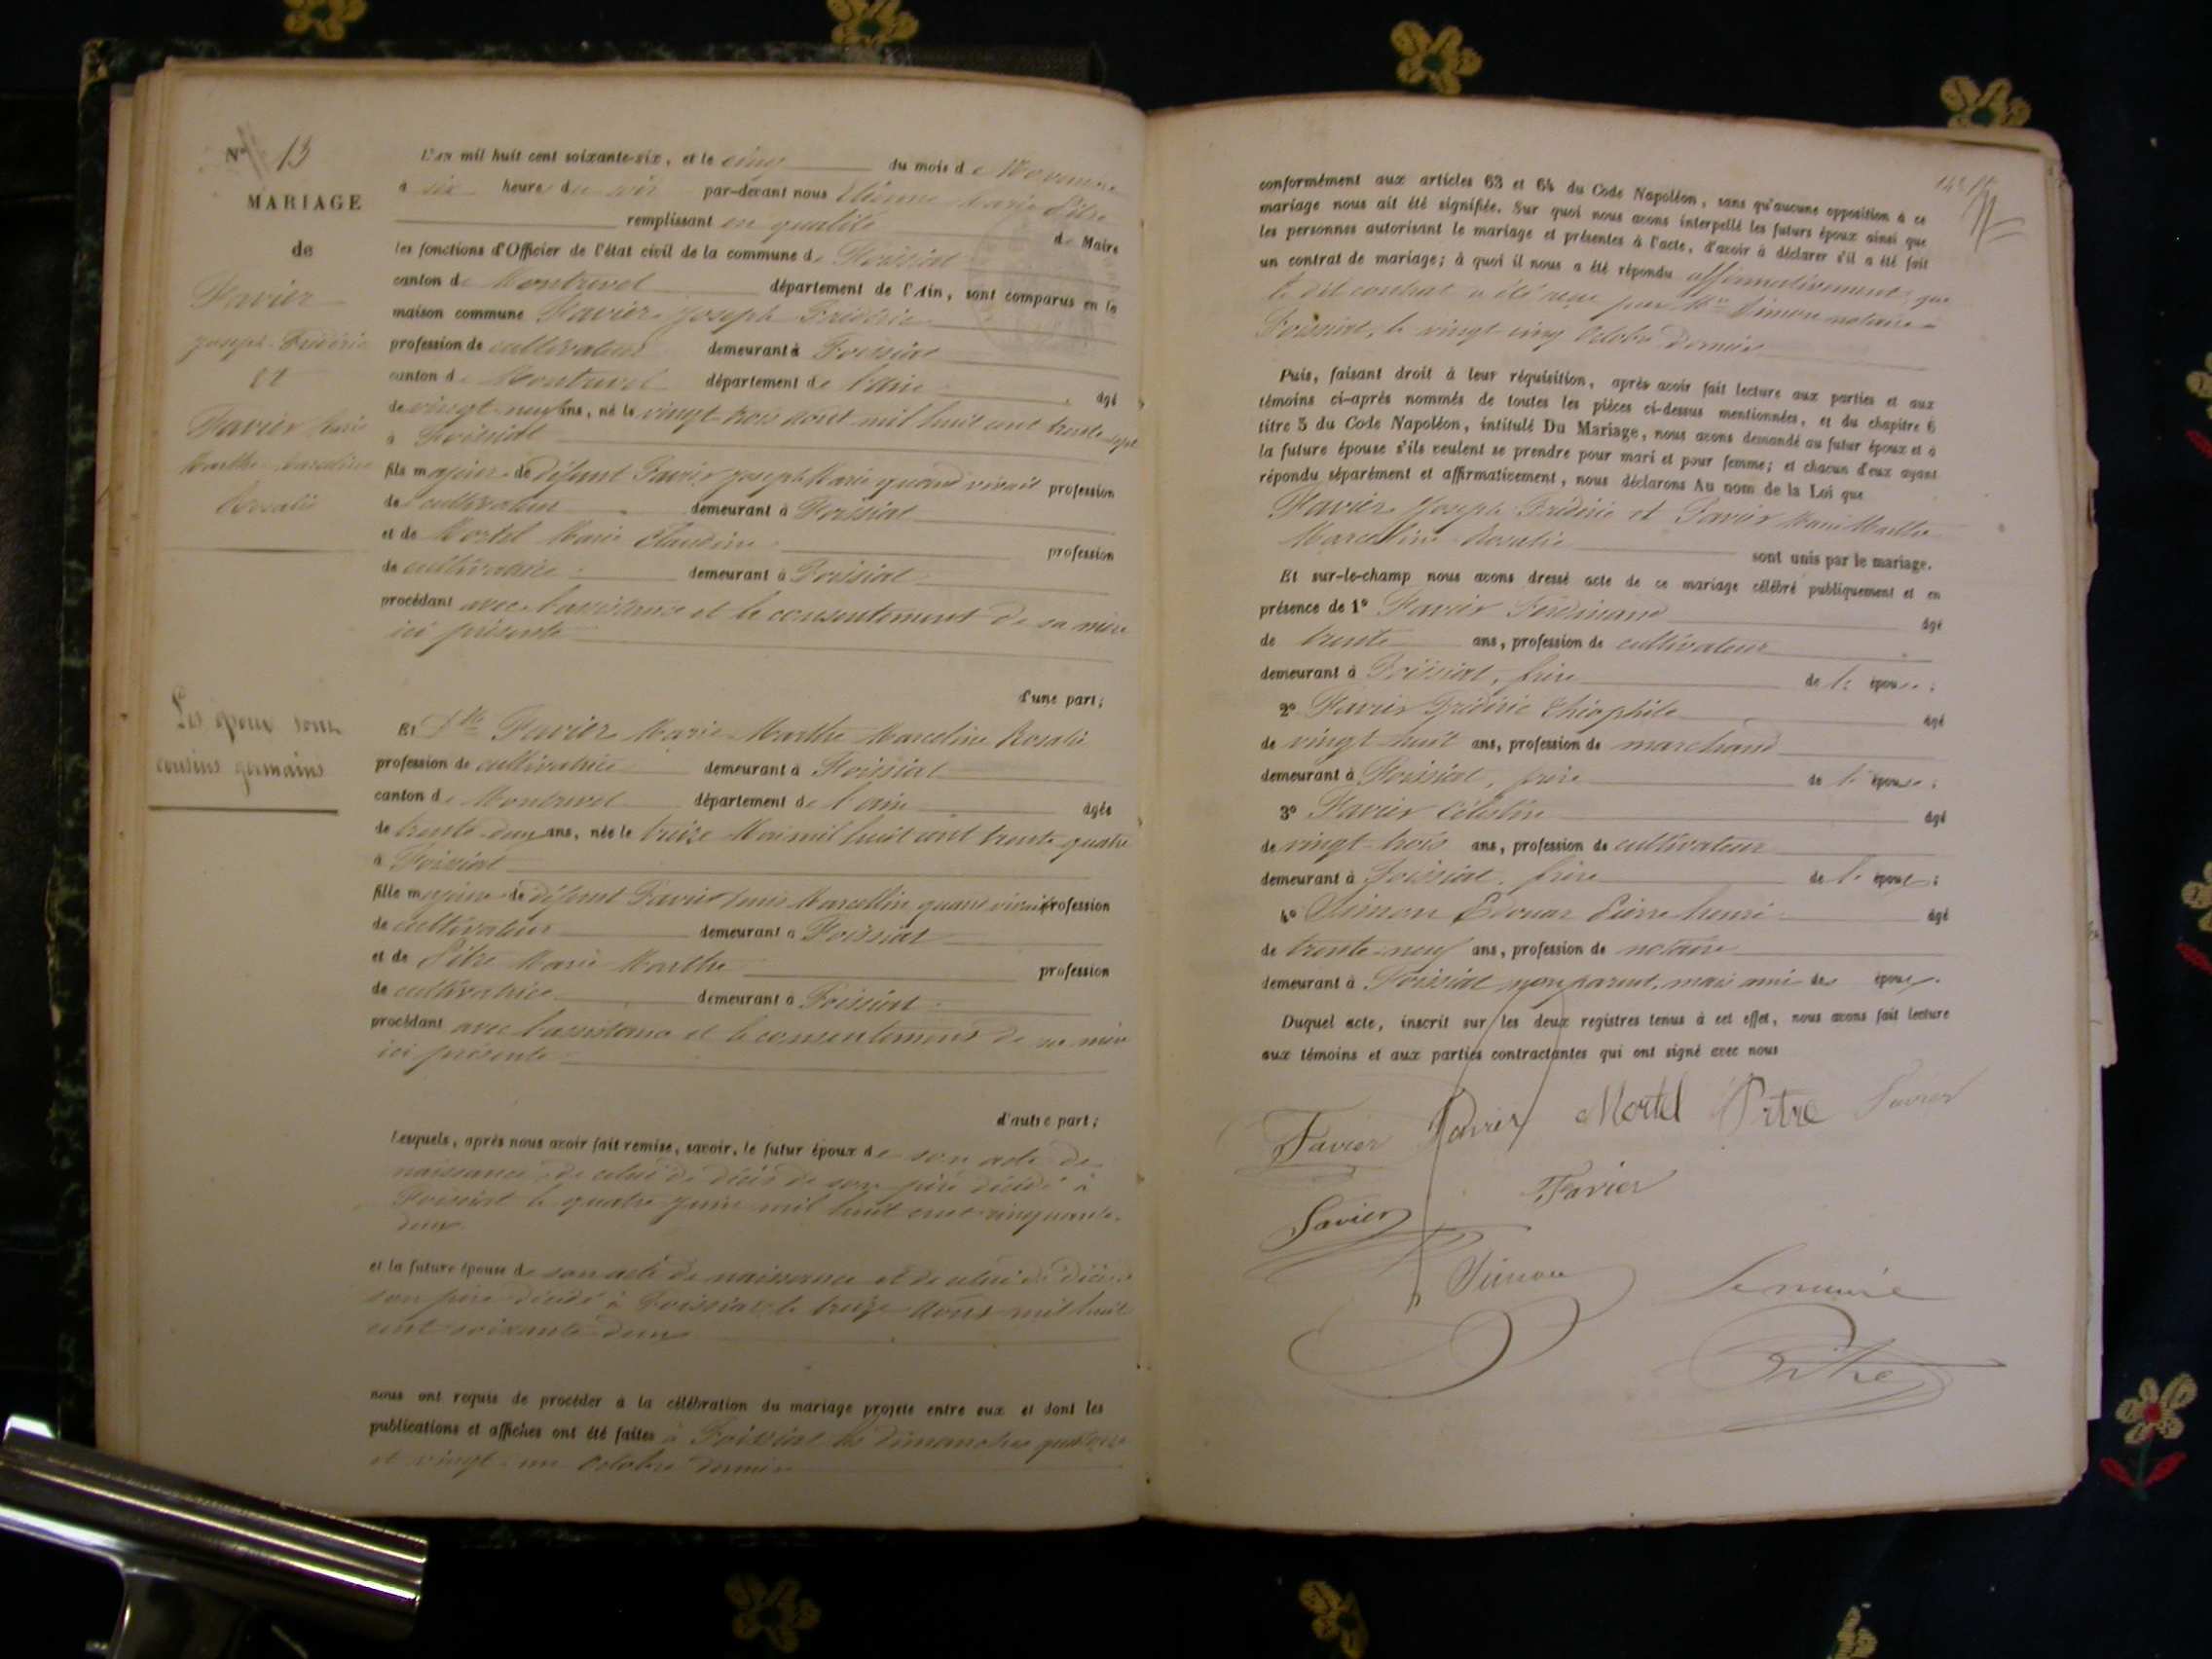 N° 13
MARIAGE
de
Favier
Joseph Frédéric
et
Favier Marie
Marthe Marceline
Rosalie
Les époux sont
cousins germains
L'AN mil huit cent soixante-six, et le cinq du mois de Novembre
à six heure du soir par-devant nous Etienne Marie Pitre
remplissant en qualité de Maire
les fonctions d'Officier de l'état civil de la commune de Foissiat
canton de Montrevel département de l'Ain, sont comparus en la
maison commune Favier Joseph Frédéric
profession de cultivateur demeurant à Foissiat
canton de Montrevel département de l'Ain âgé
de vingt neuf ans, né le vingt trois août mil huit cent trente sept
à Foissiat
fils majeur de défunt Favier Joseph Marie quand vivait profession
de cultivateur demeurant à Foissiat
et de Mortel Marie Claudine profession
de cultivatrice demeurant à Foissiat
procédant avec l'assistance et le consentement de sa mère
ici présente
d'une part;
Et Dlle Favier Marie Marthe Marceline Rosalie
profession de cultivatrice demeurant à Foissiat
canton de Montrevel département de l'ain âgée
de trente deux ans, née le treize Mai mil huit cent trente quatre
à Foissiat
fille majeure de défunt Favier Marcellin quand vivait profession
de cultivateur demeurant à Foissiat
et de Pitre Marie Marthe profession
de cultivatrice demeurant à Foissiat
procédant avec l'assistance et le consentement de sa mère
ici présente
d'autre part;
Lesquels, après nous avoir fait remise, savoir, le futur époux de son acte de
naissance, de celui de décès de son père décédé à
Foissiat le quatre juin mil huit cent cinquante-
deux
et la future épouse de son acte de naissance et de celui de décès de
son père décédé à Foissiat le treize Août mil huit
cent soixante deux
nous ont requis de procéder à la célébration du mariage projeté entre eux et dont les
publications et affiches ont été faites à Foissiat les Dimanches quatorze
et vingt-un Octobre dernier
conformément aux articles 63 et 64 du Code Napoléon, sans qu'aucune opposition à ce
mariage nous ait été signifiée. Sur quoi nous avons interpellé les futurs époux ainsi que
les personnes autorisant le mariage et présentes à l'acte, d'avoir à déclarer s'il a été fait
un contrat de mariage; à quoi il nous a été répondu affirmativement, que
le dit contrat a été reçu par Me Simon notaire à
Foissiat, le vingt-cinq Octobre Dernier
Puis, faisant droit à leur réquisition, après avoir fait lecture aux parties et aux
témoins ci-après nommés de toutes les pièces ci-dessus mentionnées, et du chapitre 6
titre 5 du Code Napoléon, intitulé Du Mariage, nous avons demandé au futur époux et à
la future épouse s'ils veulent se prendre pour mari et pour femme; et chacun d'eux ayant
répondu séparément et affirmativement, nous déclarons Au nom de la Loi que
Favier Joseph Frédéric et Favier Marie Marthe
Marceline Rosalie sont unis par le mariage.
Et sur-le-champ nous avons dressé acte de ce mariage célébré publiquement et en
présence de 1° Favier Ferdinand âgé
de trente ans, profession de cultivateur
demeurant à Foissiat, frère de l'épouse;
2° Favier Frédéric Théophile âgé
de vingt huit ans, profession de marchand
demeurant à Foissiat, frère de l'épouse;
3° Favier Célestin âgé
de vingt trois ans, profession de cultivateur
demeurant à Foissiat, frère de l'époux;
4° Simon Edouar Pierre henri âgé
de trente-neuf ans, profession de notaire
demeurant à Foissiat, non parent, mais ami des époux.
Duquel acte, inscrit sur les deux registres tenus à cet effet, nous avons fait lecture
aux témoins et aux parties contractantes qui ont signé avec nous
Favier Favier Mortel Pitre Favier
Favier Favier
Simon Le maire
Pitre